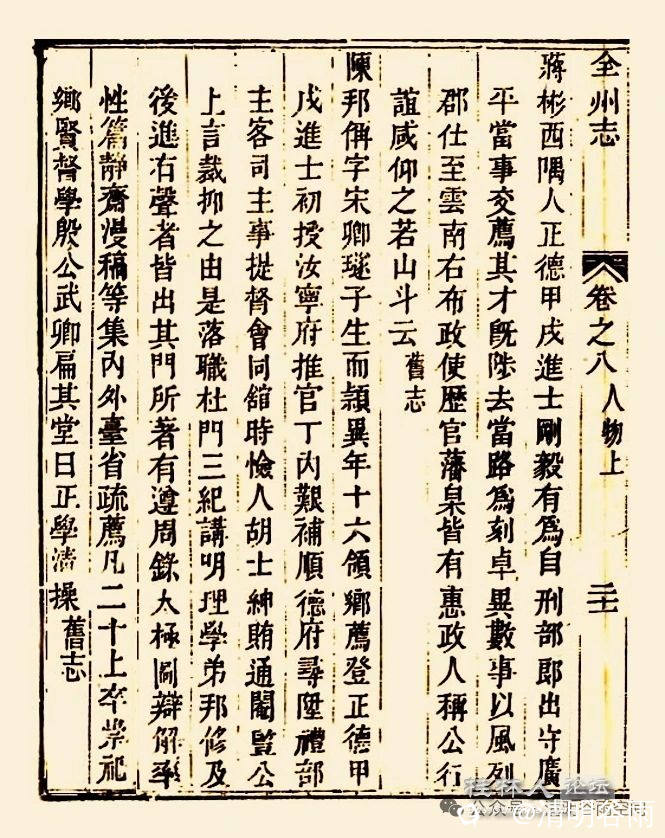 全州志 卷之八 人物上 二十一
蔣彬西隅人正德甲戌進士剛毅有為自刑部郎出守廣
平當事交薦其才既陟去當路為刻卓異數事以風列
郡仕至雲南右布政使歷官藩臬皆有惠政人稱公行
誼咸仰之若山斗云舊志
陳邦偁字宋卿璲子生而穎異年十六領鄉薦登正德甲
戌進士初授汝寧府推官丁內艱補順德府尋陞禮部
主客司主事提督會同舘時憸人胡士紳賄通閹監公
上言裁抑之由是落職杜門三紀講明理學弟邦修及
後進有聲者皆出其門所著有遵周錄太極圖辯解率
性篇靜齋漫稿等集內外臺省疏薦凡二十上卒崇祀
鄉賢督學殷公武卿扁其堂曰正學清操舊志
桂林人论坛
公众号
@清明谷雨